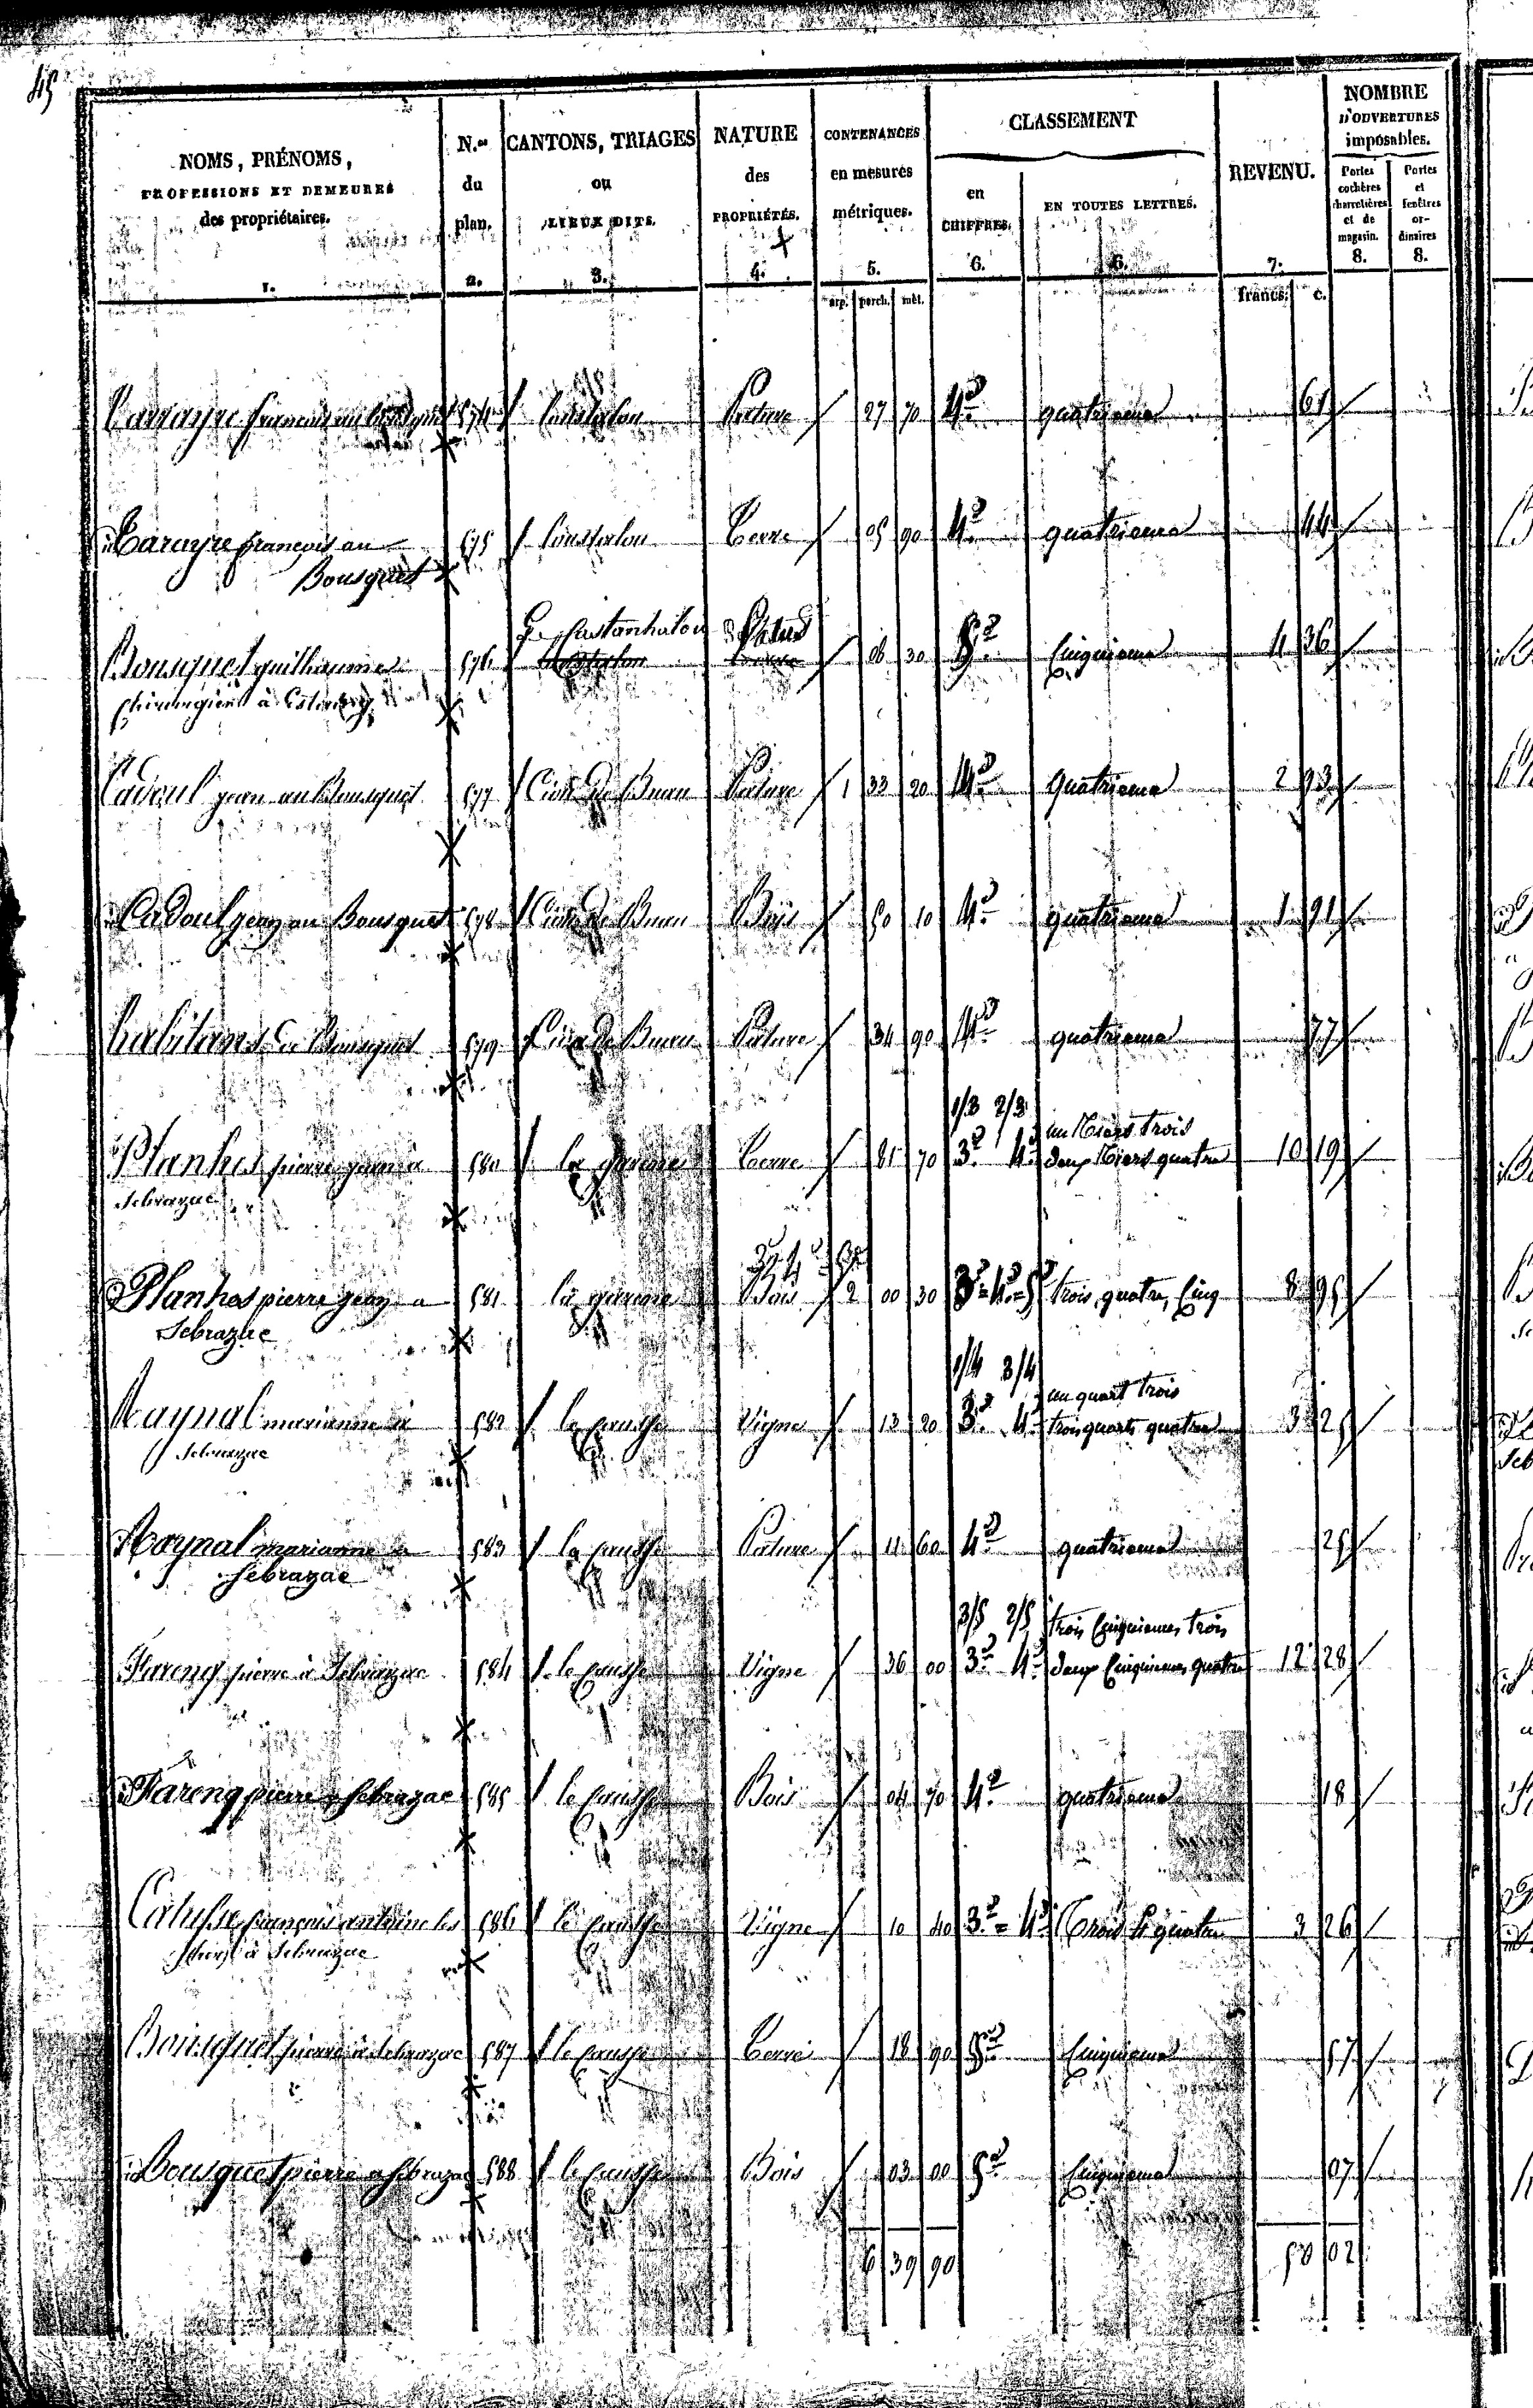 45
NOMS, PRÉNOMS,
PROFESSIONS ET DEMEURES
des propriétaires.
1.
N.os
du
plan.
2.
CANTONS, TRIAGES
ou
LIEUX DITS.
3.
NATURE
des
PROPRIÉTÉS.
4.
CONTENANCES
en mesures
métriques.
5.
arp. perch. mèt.
CLASSEMENT
en
CHIFFRES.
6.
EN TOUTES LETTRES.
6.
REVENU.
7.
francs. c.
NOMBRE
D'OUVERTURES
imposables.
Portes
cochères
charretières
et de
magasin.
8.
Portes
et
fenêtres
or-
dinaires
8.
Carayre francois au Bousquet 574 Pature 27 70 4e quatrieme 61
Carayre françois au 575 Terre 05 90 4e quatrieme 44
Bousquet
Castanhalou Patus
Bousquet guilhaume 576 06 30 5e Cinquieme 4 36
chirurgien à Estaing
Cadoul jean au Bousquet 577 de Buau Pature 1 33 20 4e quatrieme 2 93
Cadoul jean au Bousquet 578 de Buau Bois 50 10 4e quatrieme 1 91
habitans de Bousquet 579 de Buau Pature 34 90 4e quatrieme 77
1/3 2/3 un Tiers trois
Planhes pierre jean à 580 la garene Terre 81 70 3e 4e deux Tiers quatre 10 19
Sebrazac
3e 4e 5e
Planhes pierre jean a 581 la garene Bois 2 00 30 3e = 4e = 5e trois, quatre, Cinq 8 95
Sebrazac
1/4 3/4 un quart trois
Raynal marianne à 582 le Causse Vigne 13 20 3e 4e trois quarts quatre 3 25
Sebrazac
Raynal marianne a 583 le Causse Pature 11 60 4e quatrieme 25
Sebrazac
3/5 2/5 trois Cinquiemes trois
Fareng pierre à Sebrazac 584 le Causse Vigne 36 00 3e 4e deux Cinquiemes quatre 12 28
Fareng pierre a Sebrazac 585 le Causse Bois 04 70 4e quatrieme 18
françois antoine les 586 le Causse Vigne 10 40 3e = 4e Trois et quatre 3 26
à Sebrazac
Bousquet pierre à Sebrazac 587 le Causse Terre 18 90 5e Cinquieme 57
Bousquet pierre a Sebrazac 588 le Causse Bois 03 00 5e Cinquieme 07
6 39 90 50 02